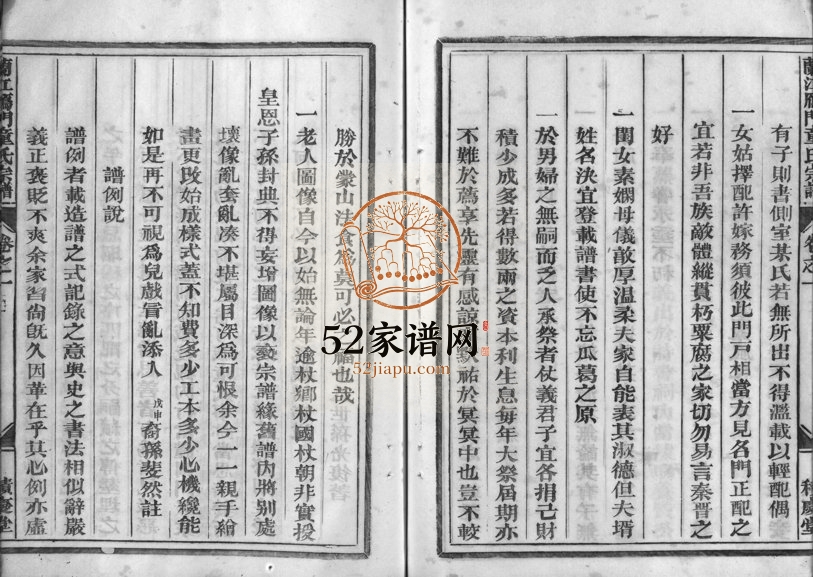 蘭江鴈門童氏宗譜
卷之一
積慶堂
有子則書側室某氏若無所出不得濫載以輕配偶
一女姑擇配許嫁務須彼此門戸相當方見名門正配之
宜若非吾族敵體縱貫朽粟腐之家切勿易言秦晋之
好
一閨女素嫻母儀敦厚溫柔夫家自能表其淑德但夫壻
姓名決宜登載譜書使不忘瓜葛之原
一於男婦之無嗣而乏人承祭者仗義君子宜各捐己財
積少成多若得數兩之資本利生息每年大祭屆期亦
不難於薦享先靈有感設
祐於冥冥中也豈不較
勝於蒙山法食
莫可必
福也哉
一老人圖像自今以始無論年逾杖鄉杖國杖朝非實授
皇恩子孫封典不得妄增圖像以
宗譜緣舊譜內將别處
壞像亂套亂凑不堪屬目深爲可恨余今一一親手繪
畫更改始成樣式蓋不知費多少工本多少心機纔能
如是再不可視爲兒戲冒亂添入
戊申
裔孫斐然註
譜例說
譜例者載造譜之式記錄之意與史之書法相似辭嚴
義正褒貶不爽余家習尙旣久因革在乎其心例亦虛
蘭江鴈門童氏宗譜
卷之一
積慶堂
52家谱网
52jiapu.com